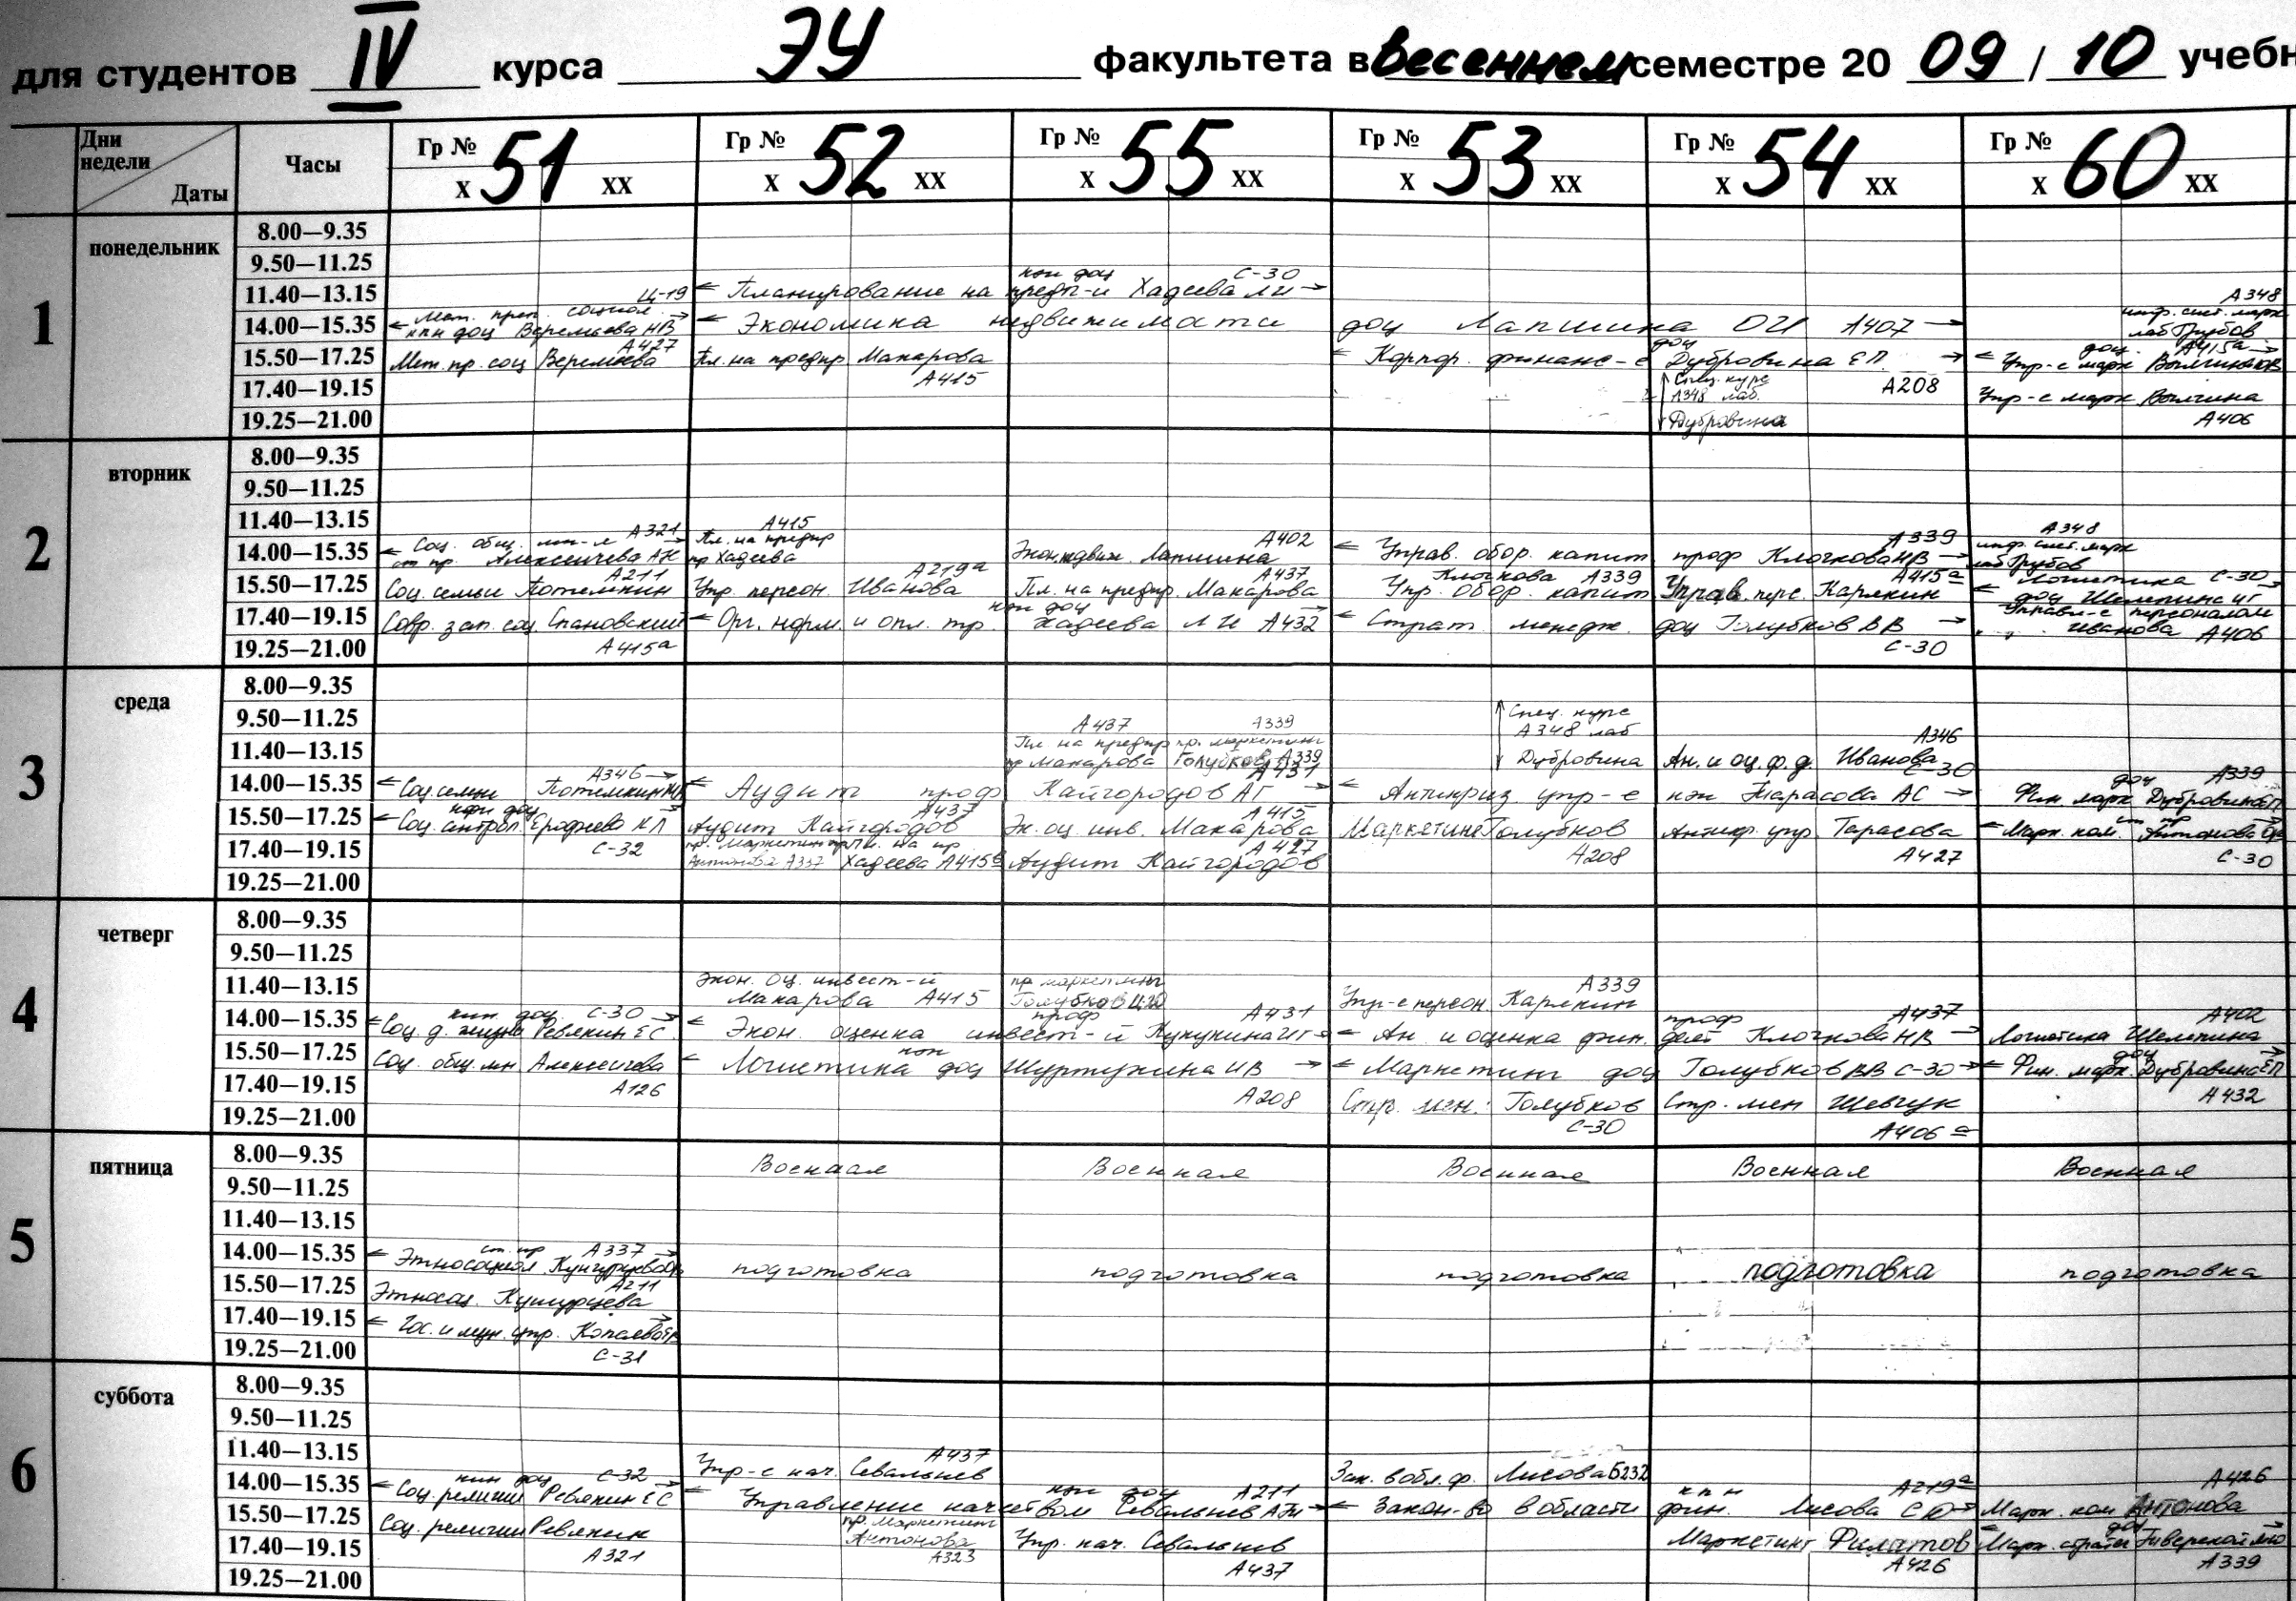 для студентов IV курса ЭУ факультета в весеннем семестре 20 09 / 10 учебн
Дни недели Даты Часы Гр № 51 х хх Гр № 52 х хх Гр № 55 х хх Гр № 53 х хх Гр № 54 х хх Гр № 60 х хх
1 понедельник
8.00—9.35
9.50—11.25
11.40—13.15 Ц-19 ← Планирование на предп-и кэн доц Хадеева ЛИ → С-30 А348
14.00—15.35 ← Мет. преп. социол. → кпн доц Веремьева НВ ← Экономика недвижимости доц Лапшина ОИ А407 → инф. сист. марк лаб Грубов
15.50—17.25 А427 Мет. пр. соц Веремьева Пл. на предпр. Макарова ← Корпор. финанс-е доц Дубровина ЕП → ← Упр-е марк доц. А415а →
17.40—19.15 А415 Спец. курс А348 лаб. А208 Упр-е марк
19.25—21.00 Дубровина А406
2 вторник
8.00—9.35
9.50—11.25
11.40—13.15 А321 А415 А402 А339 А348
14.00—15.35 ← Соц. общ. мн-я → ст пр. Алексеичева АН Пл. на предпр пр Хадеева Экон. недвиж. Лапшина ← Управ. обор. капит проф Клочкова НВ → инф. сист. марк лаб Грубов
15.50—17.25 А211 Соц. семьи Потемкин А219а Упр. персон. Иванова А437 Пл. на предпр. Макарова Клочкова А339 Упр. обор. капит А415а Управ. перс. Карякин ← Логистика С-30 → доц Шелепина ИГ
17.40—19.15 Совр. зап. соц. Спановский ← Орг. норм. и опл. тр. кэн доц Хадеева ЛИ А432 → ← Страт. менедж. доц Голубков ВВ → Управл-е персоналом
19.25—21.00 А415а С-30 Иванова А406
3 среда
8.00—9.35
9.50—11.25 А437 А339 Спец. курс А348 лаб А346
11.40—13.15 А346 Пл на предпр пр Макарова пр. маркетинг Голубков А339 Дубровина Ан. и оц. ф. д. Иванова
14.00—15.35 ← Соц семьи Потемкин → ← Аудит проф Кайгородов АГ А431 → ← Антикриз. упр-е кэн Тарасова АС С-30 → Фин. марк доц Дубровина ЕП А339
15.50—17.25 ← Соц. антроп. кфн доц Ерофеева КЛ → А437 Аудит Кайгородов А415 Эк. оц. инв. Макарова Маркетинг Голубков Антикр. упр Тарасова ← Марк. ком. ст пр Антонова
17.40—19.15 С-32 пр. Маркетинг Антонова А337 Пл. на пр Хадеева А415а А427 Аудит Кайгородов А208 А427 С-30
19.25—21.00
4 четверг
8.00—9.35
9.50—11.25
11.40—13.15 Экон. оц. инвест-й Макарова А415 пр маркетинг Голубков А339 Упр-е персон. Карякин
14.00—15.35 ← кпн доц. С-30 → Соц. д. жизни Ревякин ЕС ← Экон. оценка инвест-й проф Кукукина ИГ А431 → ← Ан. и оценка фин. деят проф Клочкова НВ А437 → Логистика Шелепина А402
15.50—17.25 Соц. общ. мн Алексеичева ← Логистика кэн доц Шуртухина ИВ → ← Маркетинг доц Голубков ВВ С-30 → ← Фин. марк. доц Дубровина ЕП
17.40—19.15 А126 А208 Стр. мен. Голубков Стр. мен Шевчук А432
19.25—21.00 С-30 А406а
5 пятница
8.00—9.35 Военная Военная Военная Военная Военная
9.50—11.25
11.40—13.15
14.00—15.35 ← Этносоциол. ст. пр А337 → подготовка подготовка подготовка подготовка подготовка
15.50—17.25 А211 Этносоц.
17.40—19.15 ← Гос. и мун. упр. →
19.25—21.00 С-31
6 суббота
8.00—9.35
9.50—11.25
11.40—13.15 Упр-е кач. Севальнев А437 Зак. в обл. ф. Лисова Б232
14.00—15.35 ← Соц. религии кпн доц С-32 → Ревякин ЕС ← Управление качеством кпн доц Севальнев А211 → ← Закон-во в области фин. кпн Лисова А219а → Марк. ком Антонова А426
15.50—17.25 Соц. религии Ревякин пр. Маркетинг Антонова Упр. кач. Севальнев Маркетинг Филатов Марк. доц
17.40—19.15 А321 А323 А437 А426 А339
19.25—21.00